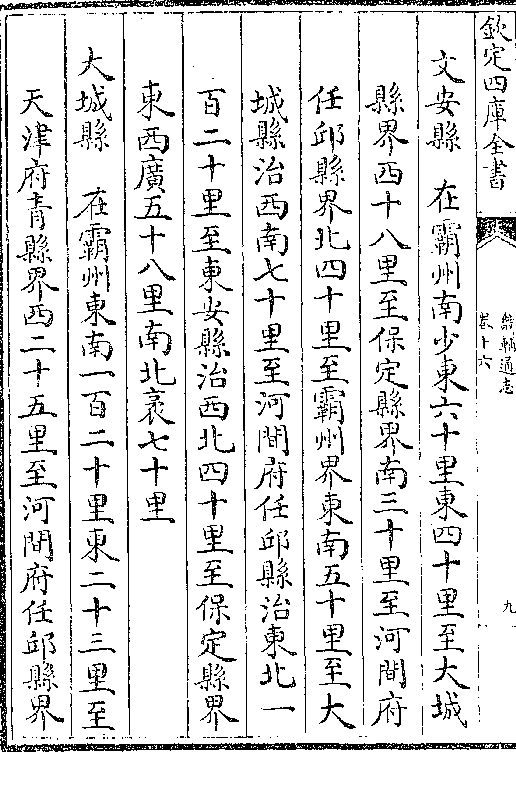 欽定四庫全書
畿輔通志
卷十六
九
文安縣　在霸州南少東六十里東四十里至大城
縣界西十八里至保定縣界南三十里至河間府
任邱縣界北四十里至霸州界東南五十里至大
城縣治西南七十里至河間府任邱縣治東北一
百二十里至東安縣治西北四十里至保定縣界
東西廣五十八里南北袤七十里
大城縣　在霸州東南一百二十里東二十三里至
天津府青縣界西二十五里至河間府任邱縣界